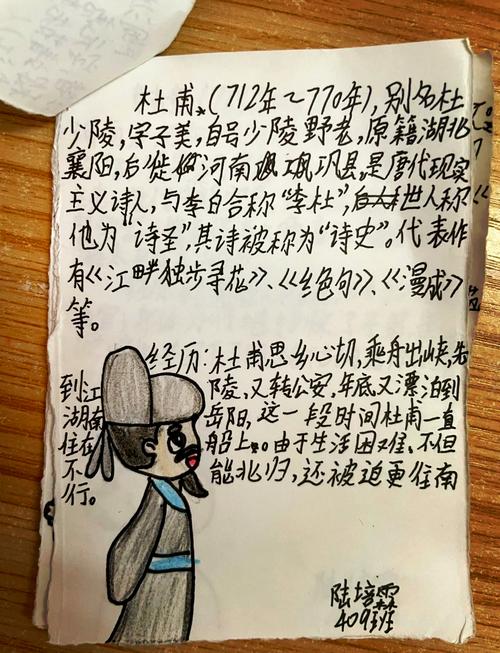 杜甫(712年~770年),别名杜
少陵,字子美,自号少陵野老,原籍湖北
襄阳,后徙河南巩县,是唐代现实
主义诗人,与李白合称“李杜”,世人称
他为“诗圣”,其诗被称为“诗史”。代表作
有《江畔独步寻花》、《绝句》、《漫成》
等。
经历:杜甫思乡心切,乘舟出峡,先
到江陵,又转公安,年底又漂泊到
湖南岳阳,这一段时间杜甫一直
住在船上。由于生活困难,不但
不能北归,还被迫更往南
行。
陆培霖
409班